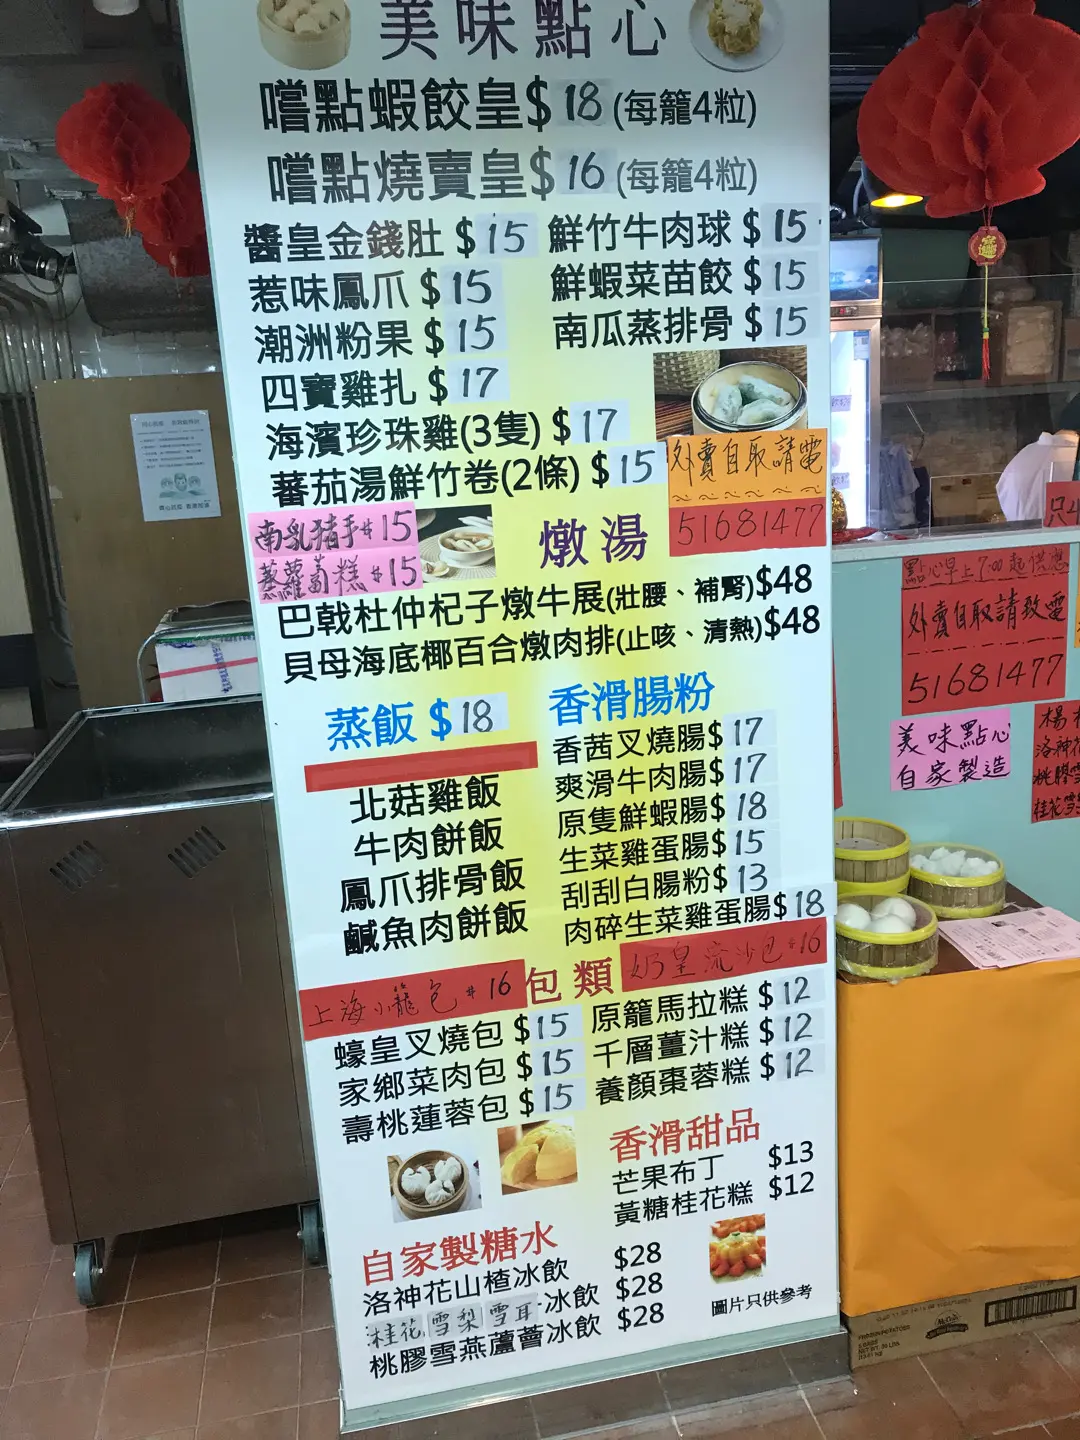 美味點心
嚐點蝦餃皇$18(每籠4粒)
嚐點燒賣皇$16(每籠4粒)
醬皇金錢肚 $15
鮮竹牛肉球 $15
惹味鳳爪 $15
鮮蝦菜苗餃 $15
潮洲粉果 $15
南瓜蒸排骨 $15
四寶雞扎 $17
海濱珍珠雞(3隻) $17
蕃茄湯鮮竹卷(2條) $15
外賣自取請電
51681477
南乳豬手#15
蒸蘿蔔糕#15
燉湯
巴戟杜仲杞子燉牛展(壯腰、補腎)$48
貝母海底椰百合燉肉排(止咳、清熱)$48
蒸飯 $18
北菇雞飯
牛肉餅飯
鳳爪排骨飯
鹹魚肉餅飯
香滑腸粉
香茜叉燒腸$17
爽滑牛肉腸$17
原隻鮮蝦腸$18
生菜雞蛋腸$15
刮刮白腸粉$13
肉碎生菜雞蛋腸$18
上海小籠包#16
包類
奶皇流沙包#16
蠔皇叉燒包 $15
家鄉菜肉包 $15
壽桃蓮蓉包 $15
原籠馬拉糕 $12
千層薑汁糕 $12
養顏棗蓉糕 $12
香滑甜品
芒果布丁 $13
黃糖桂花糕 $12
自家製糖水
洛神花山楂冰飲 $28
桂花雪梨雪耳冰飲 $28
桃膠雪燕蘆薈冰飲 $28
圖片只供參考
只4
點心早上7:00起供應
外賣自取請致電
51681477
美味點心
自家製造
楊
洛神花
桃膠雪
桂花雪